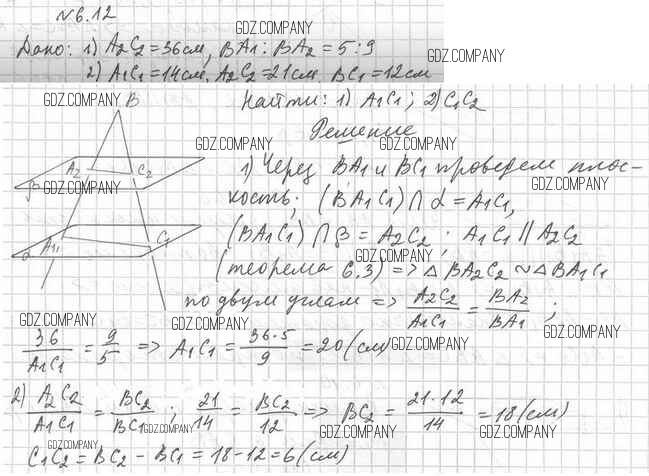 №6.12
GDZ.COMPANY
Дано: 1) A₂C₂=36см, BA₁:BA₂=5:9
GDZ.COMPANY
2) A₁C₁=14см. A₂C₂=21см, BC₁=12см
GDZ.COMPANY
B
Найти: 1) A₁C₁; 2) C₁C₂
GDZ.COMPANY
Решение
GDZ.COMPANY
GDZ.COMPANY
A₂
C₂
β
GDZ.COMPANY
1) Через BA₁ и BC₁ проведем плос-
GDZ.COMPANY
кость; (BA₁C₁) ∩ α = A₁C₁,
A₁
C₁
α
(BA₁C₁) ∩ β = A₂C₂; A₁C₁ ∥ A₂C₂
GDZ.COMPANY
(теорема 6.3) => △BA₂C₂ ~ △BA₁C₁
по двум углам => A₂C₂/A₁C₁ = BA₂/BA₁;
GDZ.COMPANY
GDZ.COMPANY
GDZ.COMPANY
36/A₁C₁ = 9/5 => A₁C₁ = 36·5/9 = 20 (см)
GDZ.COMPANY
2) A₂C₂/A₁C₁ = BC₂/BC₁; 21/14 = BC₂/12 => BC₂ = 21·12/14 = 18 (см)
GDZ.COMPANY
GDZ.COMPANY
GDZ.COMPANY
GDZ.COMPANY
C₁C₂ = BC₂ - BC₁ = 18-12 = 6 (см)